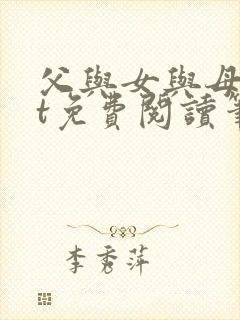 父與女與母
t免費閱讀筆
李秀萍